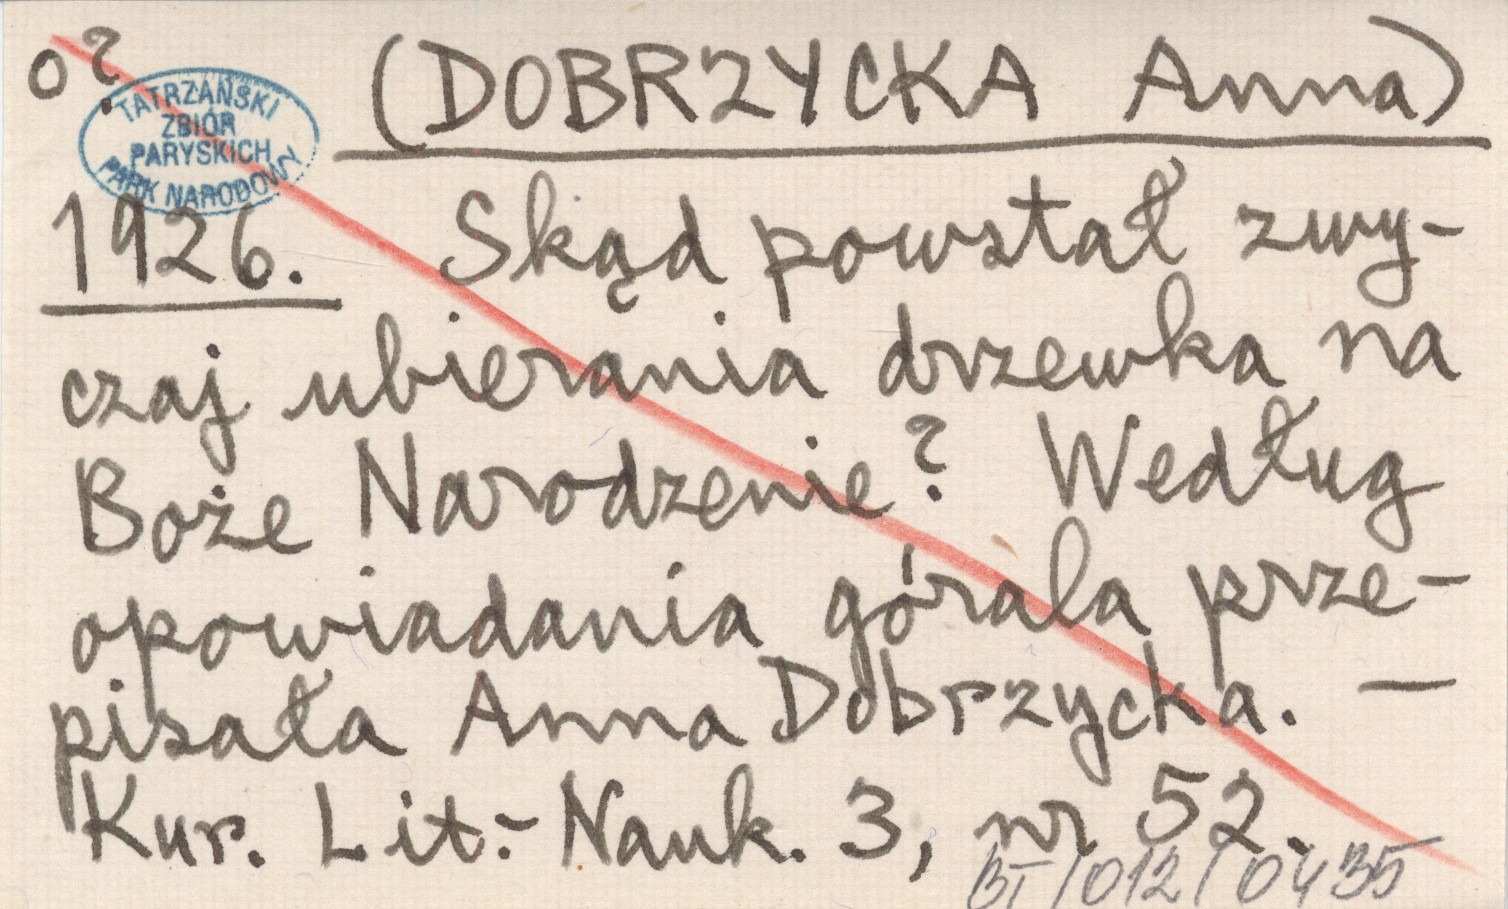 o? (DOBRZYCKA Anna)
TATRZAŃSKI
ZBIÓR
PARYSKICH
PARK NARODOWY
1926. Skąd powstał zwy-
czaj ubierania drzewka na
Boże Narodzenie? Według
opowiadania górala prze-
pisała Anna Dobrzycka. —
Kur. Lit.-Nauk. 3, nr 52.
BT/012/0435